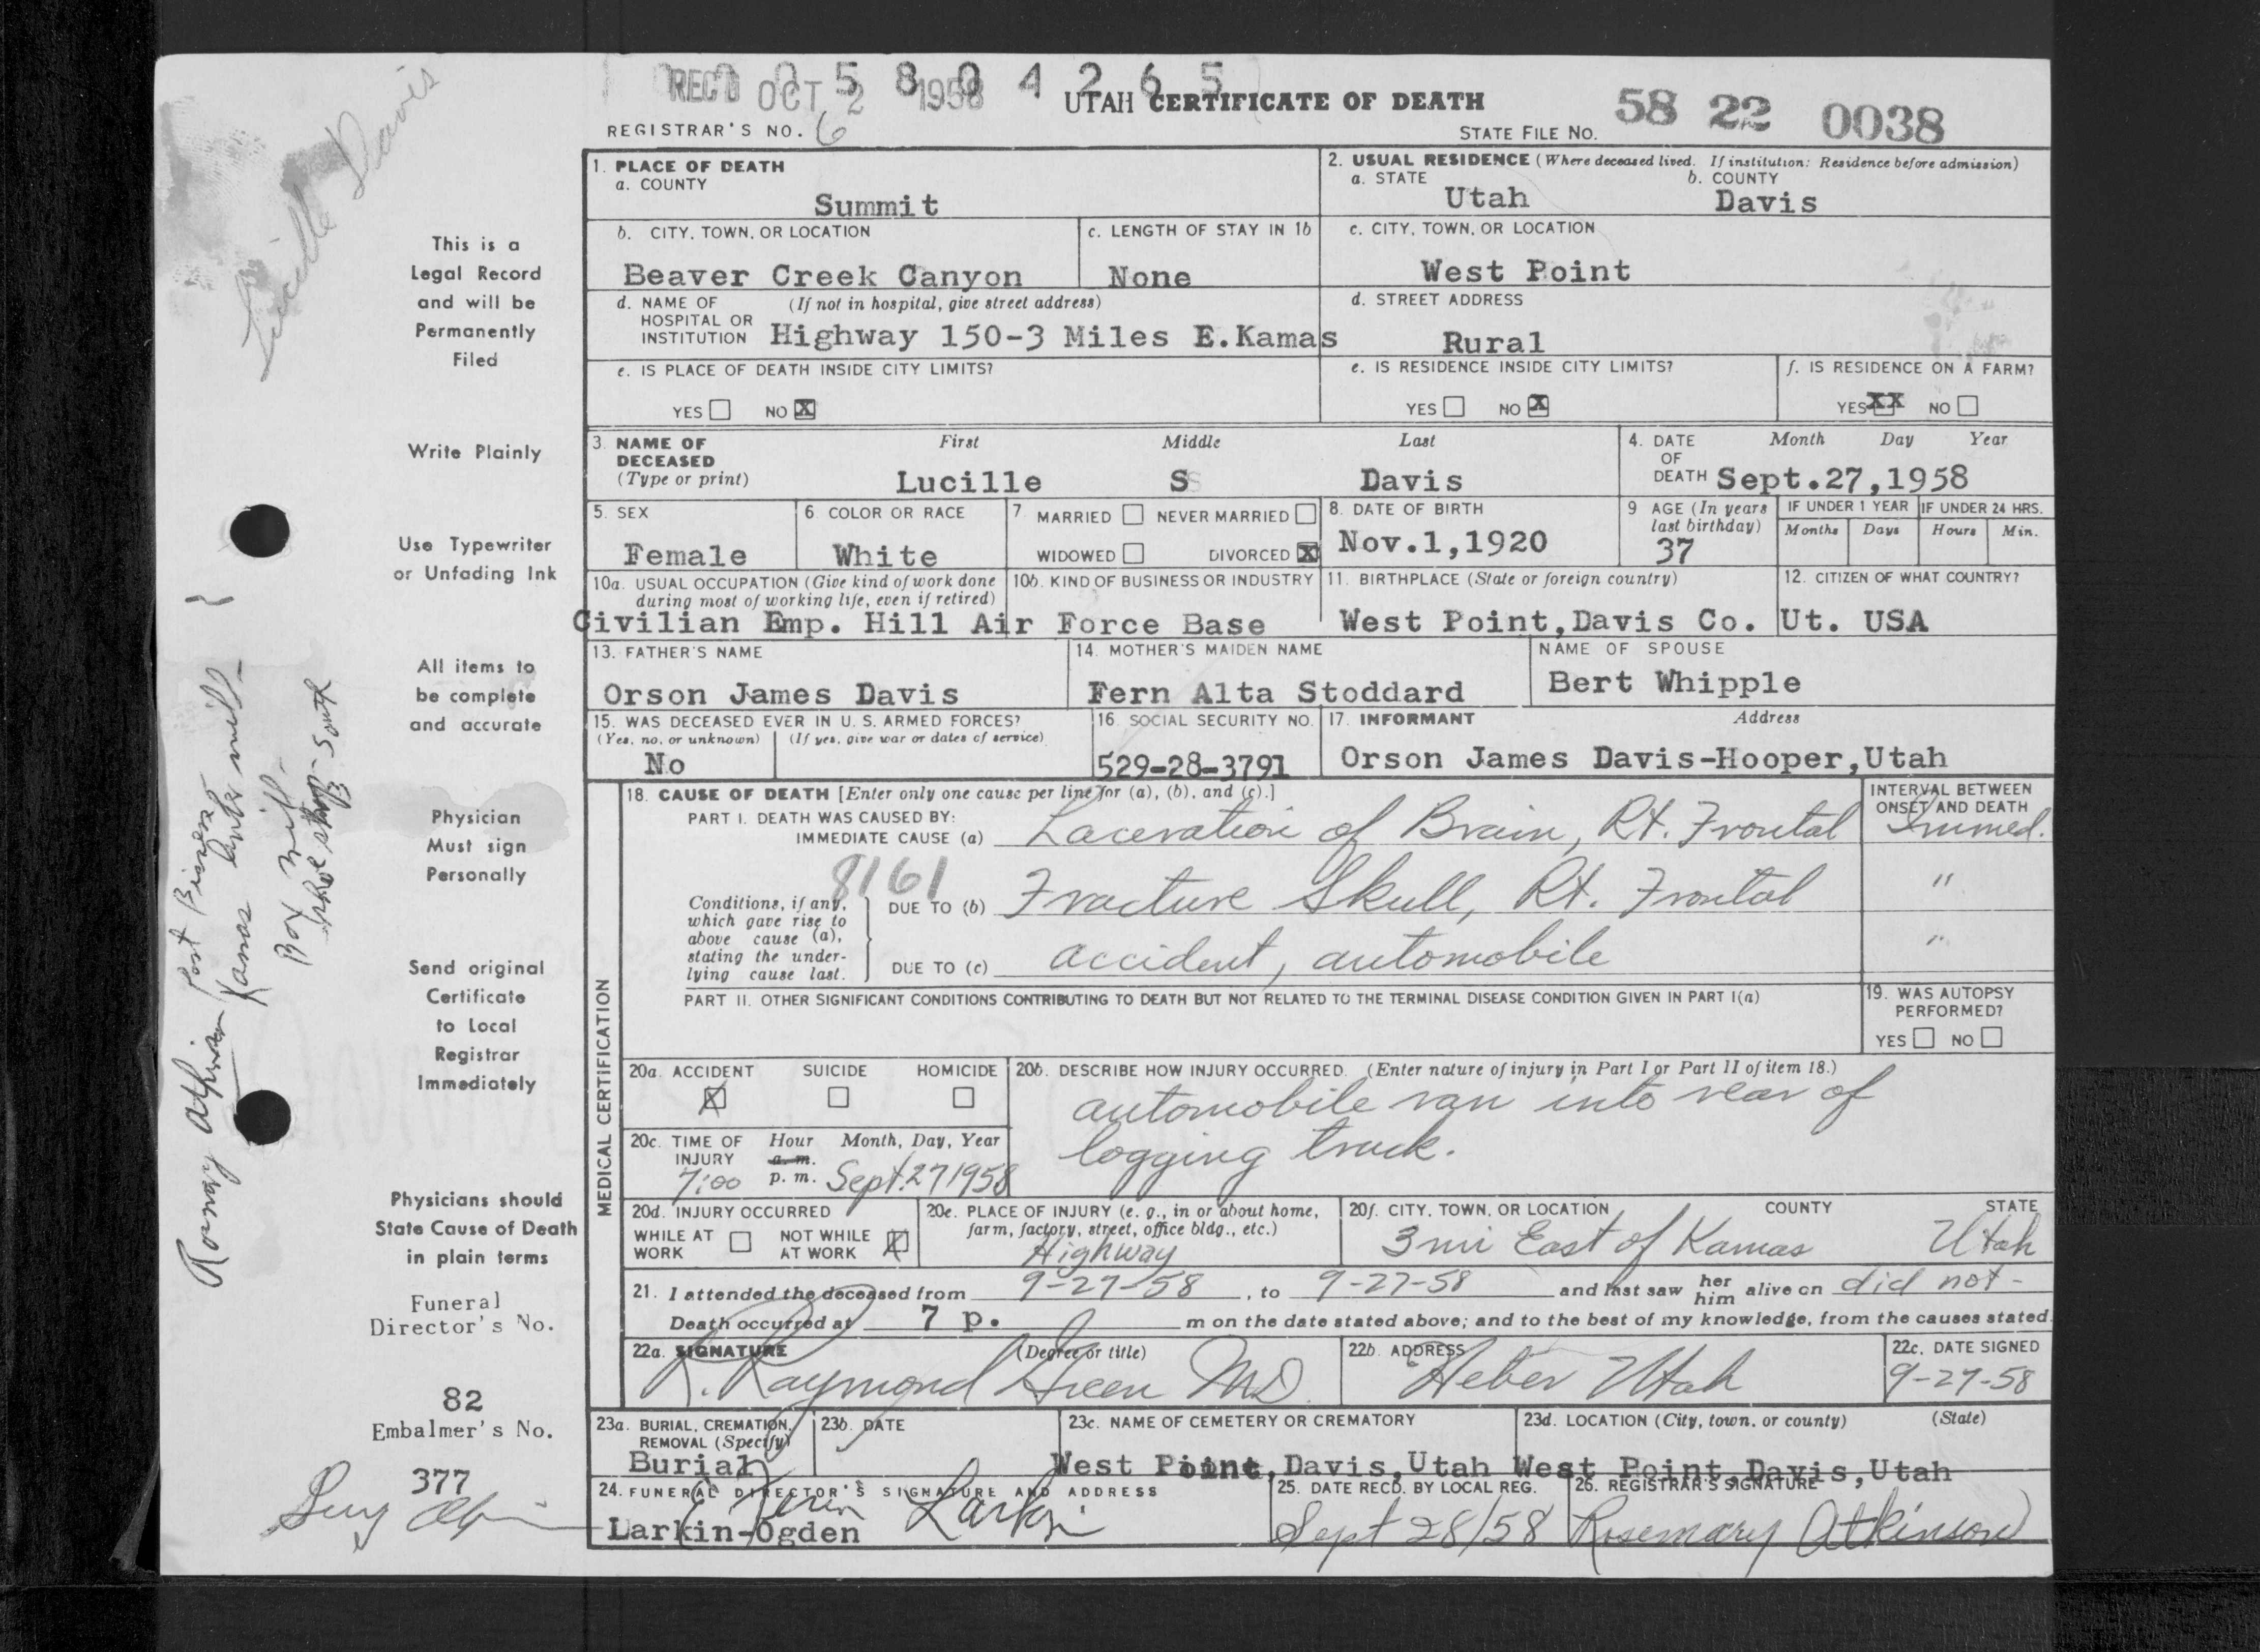 0 5 8 0 4 2 6 5
REC'D OCT 2 1958
UTAH CERTIFICATE OF DEATH
58 22 0038
REGISTRAR'S NO. 6
STATE FILE NO.
Lucille Davis
This is a
Legal Record
and will be
Permanently
Filed
Write Plainly
Use Typewriter
or Unfading Ink
All items to
be complete
and accurate
Physician
Must sign
Personally
Send original
Certificate
to Local
Registrar
Immediately
Physicians should
State Cause of Death
in plain terms
Funeral
Director's No.
82
Embalmer's No.
377
1. PLACE OF DEATH
a. COUNTY
Summit
2. USUAL RESIDENCE (Where deceased lived. If institution: Residence before admission)
a. STATE b. COUNTY
Utah Davis
b. CITY, TOWN, OR LOCATION
Beaver Creek Canyon
c. LENGTH OF STAY IN 1b
None
c. CITY, TOWN, OR LOCATION
West Point
d. NAME OF (If not in hospital, give street address)
HOSPITAL OR
INSTITUTION Highway 150-3 Miles E.Kamas
d. STREET ADDRESS
Rural
e. IS PLACE OF DEATH INSIDE CITY LIMITS?
YES NO X
e. IS RESIDENCE INSIDE CITY LIMITS?
YES NO X
f. IS RESIDENCE ON A FARM?
YES XX NO
3. NAME OF First Middle Last
DECEASED
(Type or print) Lucille S Davis
4. DATE Month Day Year
OF
DEATH Sept.27,1958
5. SEX
Female
6. COLOR OR RACE
White
7. MARRIED NEVER MARRIED
WIDOWED DIVORCED X
8. DATE OF BIRTH
Nov.1,1920
9 AGE (In years
last birthday)
37
IF UNDER 1 YEAR IF UNDER 24 HRS.
Months Days Hours Min.
10a. USUAL OCCUPATION (Give kind of work done
during most of working life, even if retired)
10b. KIND OF BUSINESS OR INDUSTRY
Civilian Emp. Hill Air Force Base
11. BIRTHPLACE (State or foreign country)
12. CITIZEN OF WHAT COUNTRY?
West Point,Davis Co. Ut. USA
13. FATHER'S NAME
Orson James Davis
14. MOTHER'S MAIDEN NAME
Fern Alta Stoddard
NAME OF SPOUSE
Bert Whipple
15. WAS DECEASED EVER IN U. S. ARMED FORCES?
(Yes, no, or unknown) (If yes, give war or dates of service)
No
16. SOCIAL SECURITY NO.
529-28-3791
17. INFORMANT Address
Orson James Davis-Hooper,Utah
MEDICAL CERTIFICATION
18. CAUSE OF DEATH [Enter only one cause per line for (a), (b), and (c).]
INTERVAL BETWEEN
ONSET AND DEATH
PART I. DEATH WAS CAUSED BY:
IMMEDIATE CAUSE (a) Laceration of Brain, Rt. Frontal Immed.
8161
Conditions, if any,
which gave rise to
above cause (a),
stating the under-
lying cause last.
DUE TO (b) Fracture Skull, Rt. Frontal "
DUE TO (c) accident, automobile "
PART II. OTHER SIGNIFICANT CONDITIONS CONTRIBUTING TO DEATH BUT NOT RELATED TO THE TERMINAL DISEASE CONDITION GIVEN IN PART I(a)
19. WAS AUTOPSY
PERFORMED?
YES NO
20a. ACCIDENT SUICIDE HOMICIDE
X
20b. DESCRIBE HOW INJURY OCCURRED. (Enter nature of injury in Part I or Part II of item 18.)
automobile ran into rear of
logging truck.
20c. TIME OF Hour Month, Day, Year
INJURY a. m.
7:00 p. m. Sept. 27 1958
20d. INJURY OCCURRED
WHILE AT NOT WHILE
WORK AT WORK X
20e. PLACE OF INJURY (e. g., in or about home,
farm, factory, street, office bldg., etc.)
Highway
20f. CITY, TOWN, OR LOCATION COUNTY STATE
3 mi East of Kamas Utah
21. I attended the deceased from 9-27-58, to 9-27-58 and last saw her him alive on did not -
Death occurred at 7 p. m on the date stated above; and to the best of my knowledge, from the causes stated.
22a. SIGNATURE (Degree or title)
R. Raymond Green MD.
22b. ADDRESS
Heber Utah
22c. DATE SIGNED
9-27-58
23a. BURIAL, CREMATION,
REMOVAL (Specify)
Burial
23b. DATE
23c. NAME OF CEMETERY OR CREMATORY
West Point,Davis,Utah
23d. LOCATION (City, town, or county) (State)
West Point,Davis,Utah
24. FUNERAL DIRECTOR'S SIGNATURE AND ADDRESS
Larkin
Larkin-Ogden
25. DATE RECD. BY LOCAL REG.
Sept 28/58
26. REGISTRAR'S SIGNATURE
Rosemary Atkinson